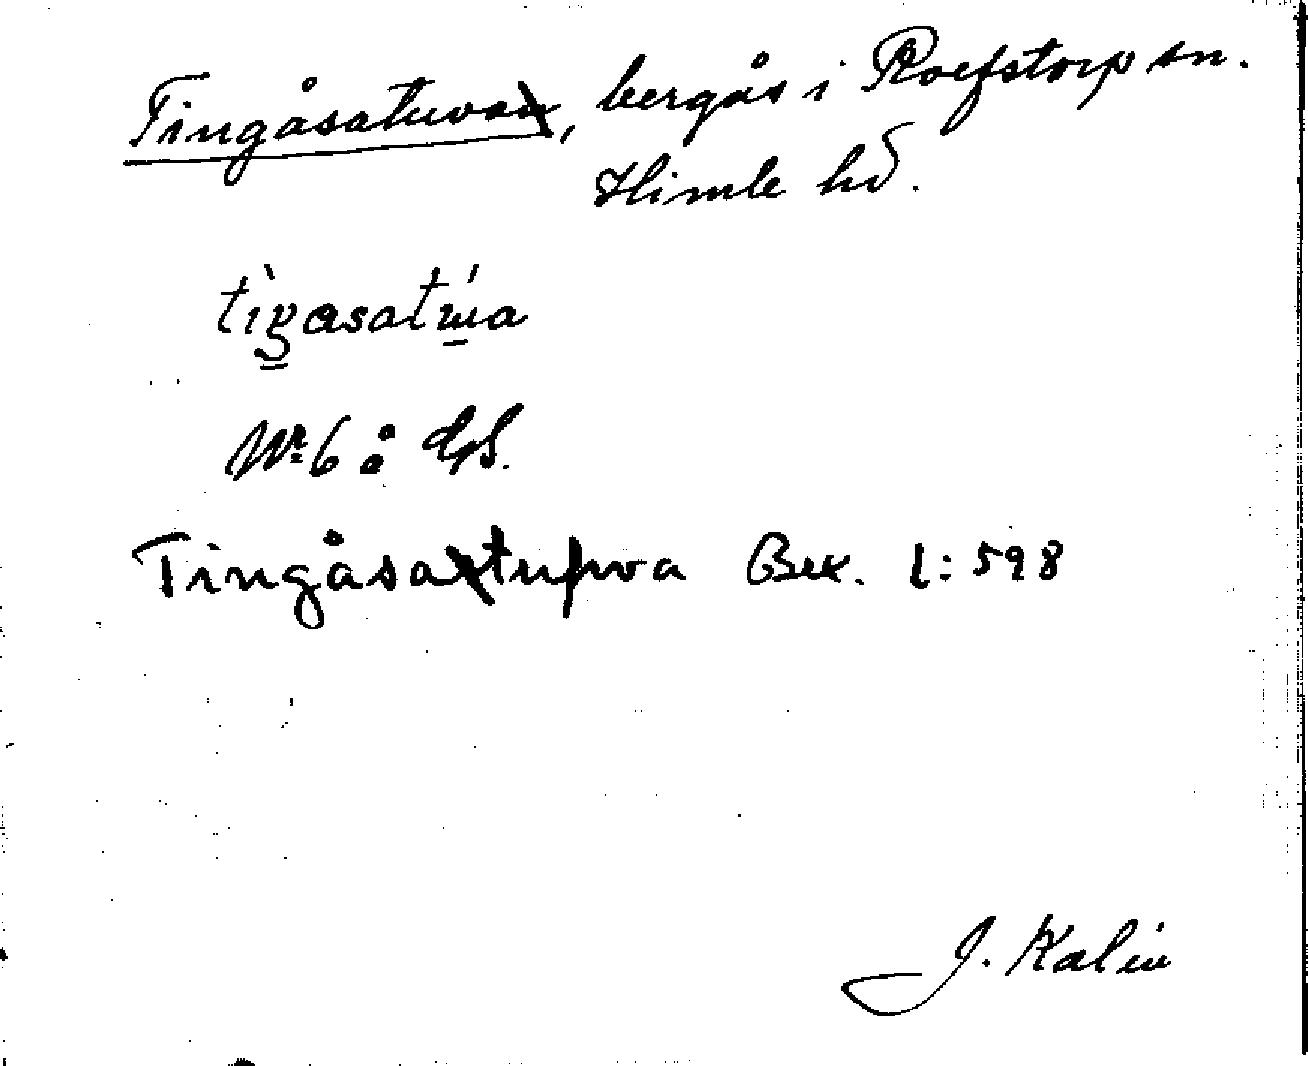 Tingåsatuvan, bergås i Rolfstorp sn.
Himle hd.
tìŋasatúa
Nr 6 å GS.
Tingåsatufwa Bex. 1:598
J. Kalén